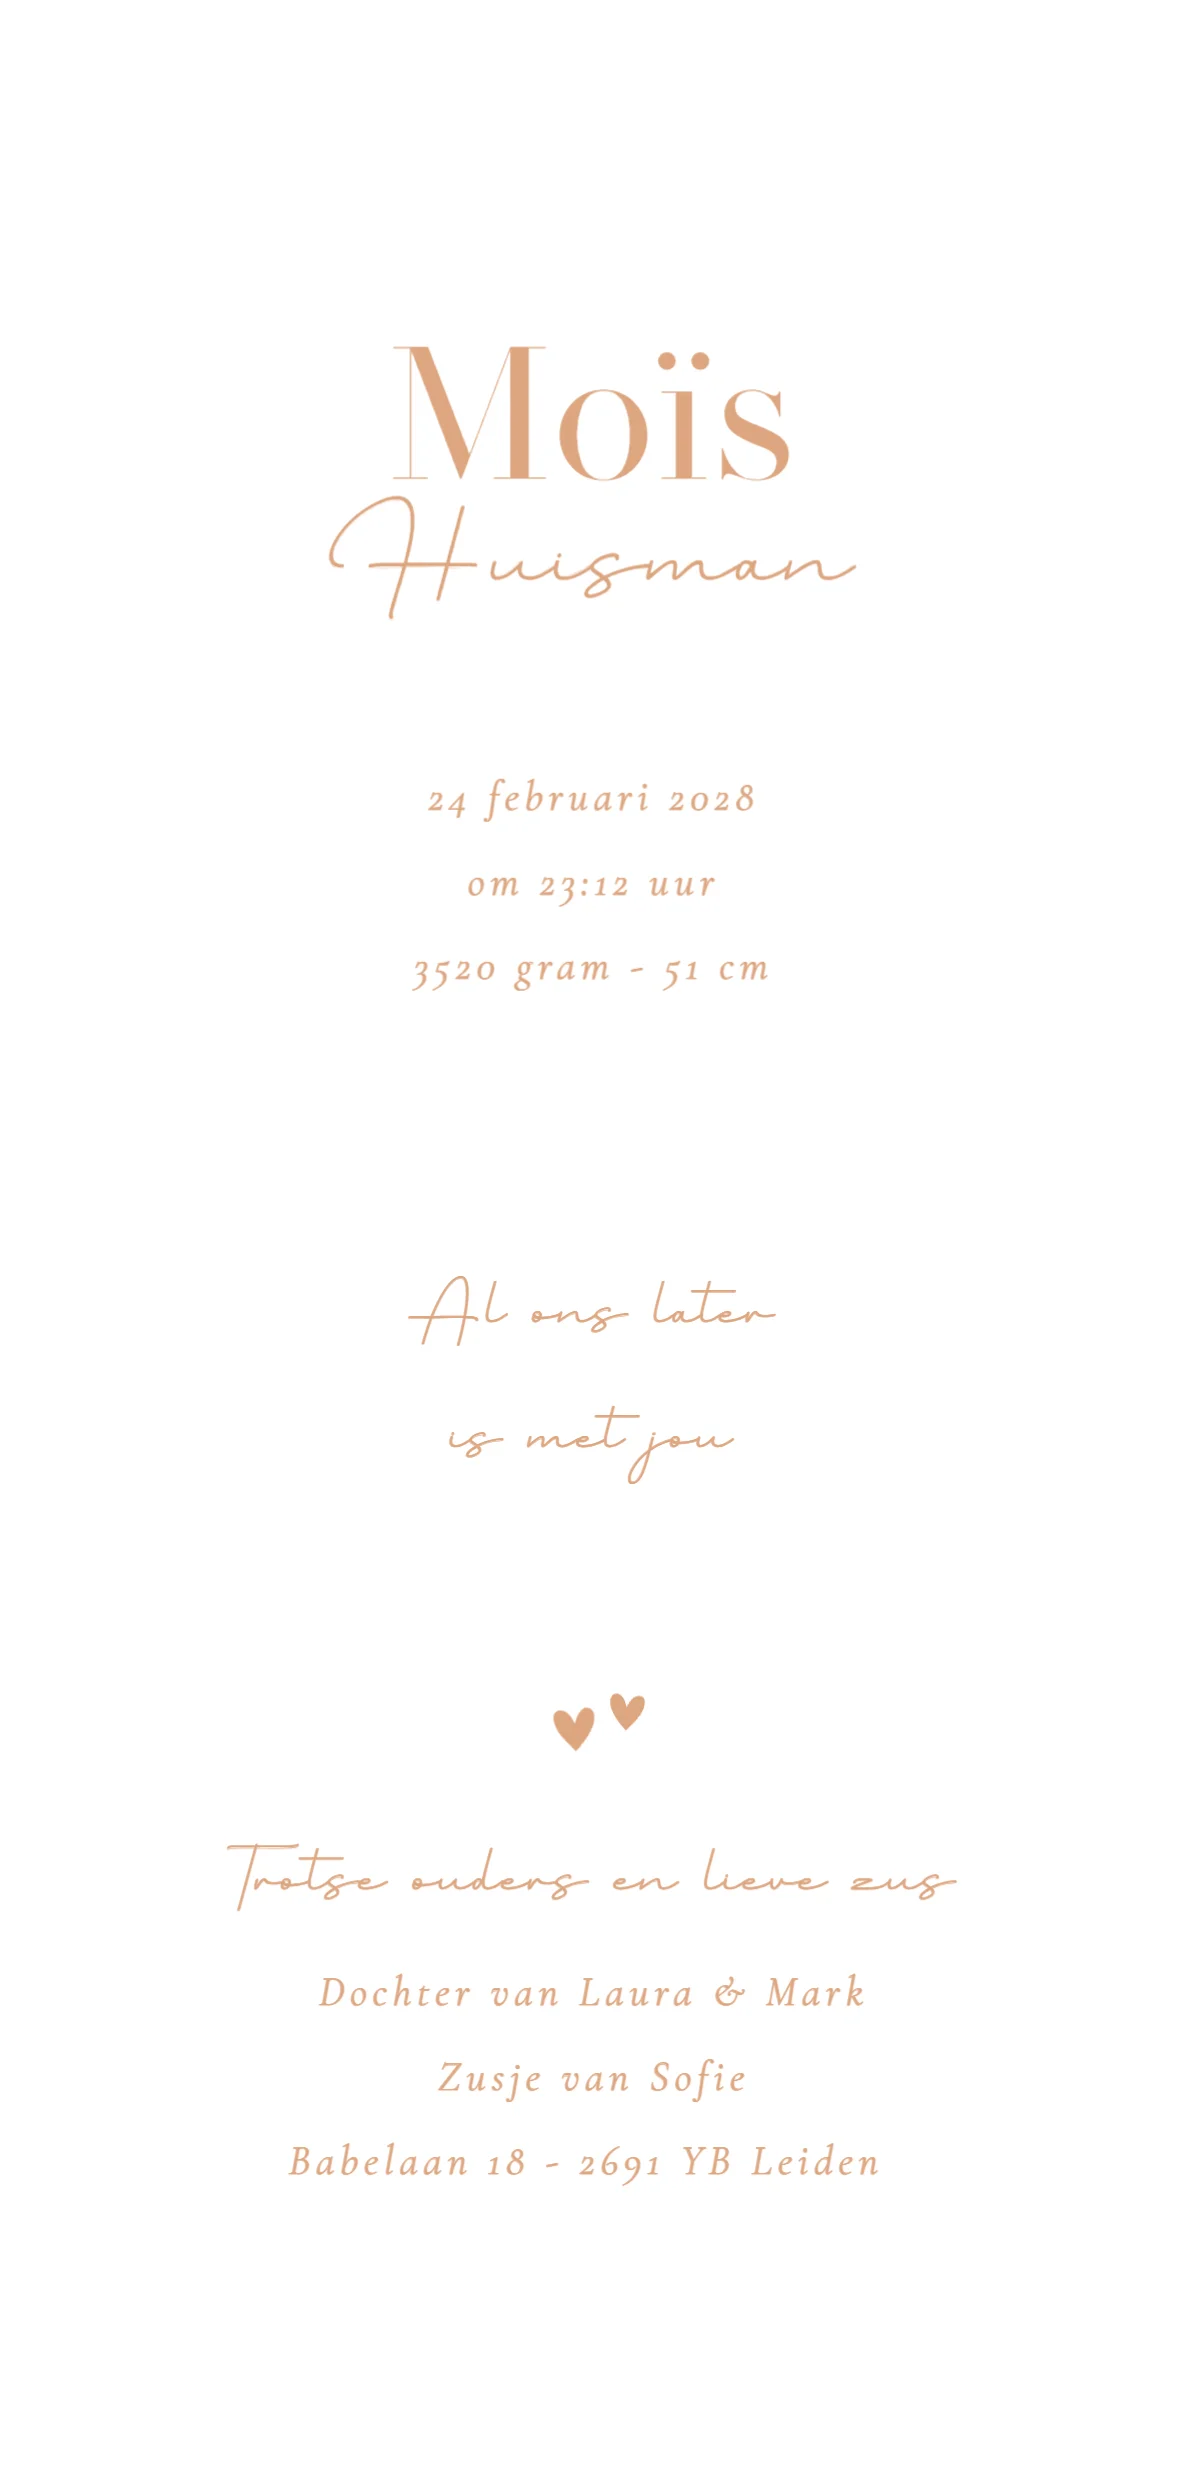 Moïs
Huisman
24 februari 2028
om 23:12 uur
3520 gram - 51 cm
Al ons later
is met jou
Trotse ouders en lieve zus
Dochter van Laura & Mark
Zusje van Sofie
Babelaan 18 - 2691 YB Leiden